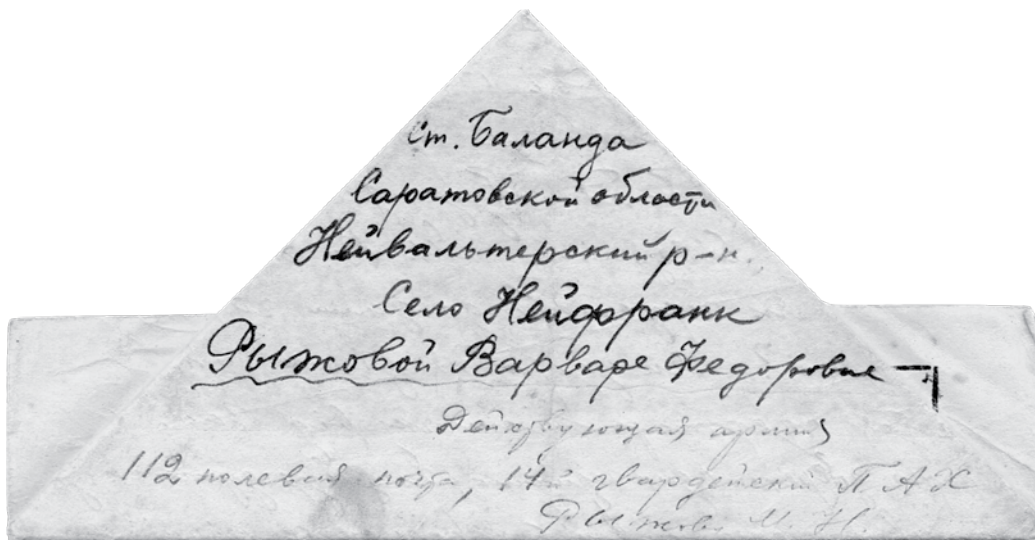 ст. Баланда
Саратовской области
Нейвальтерский р-н.
Село Нейфранк
Рыжовой Варваре Федоровне
Действующая армия
112 полевая почта, 14й гвардейский П А Х
Рыжов